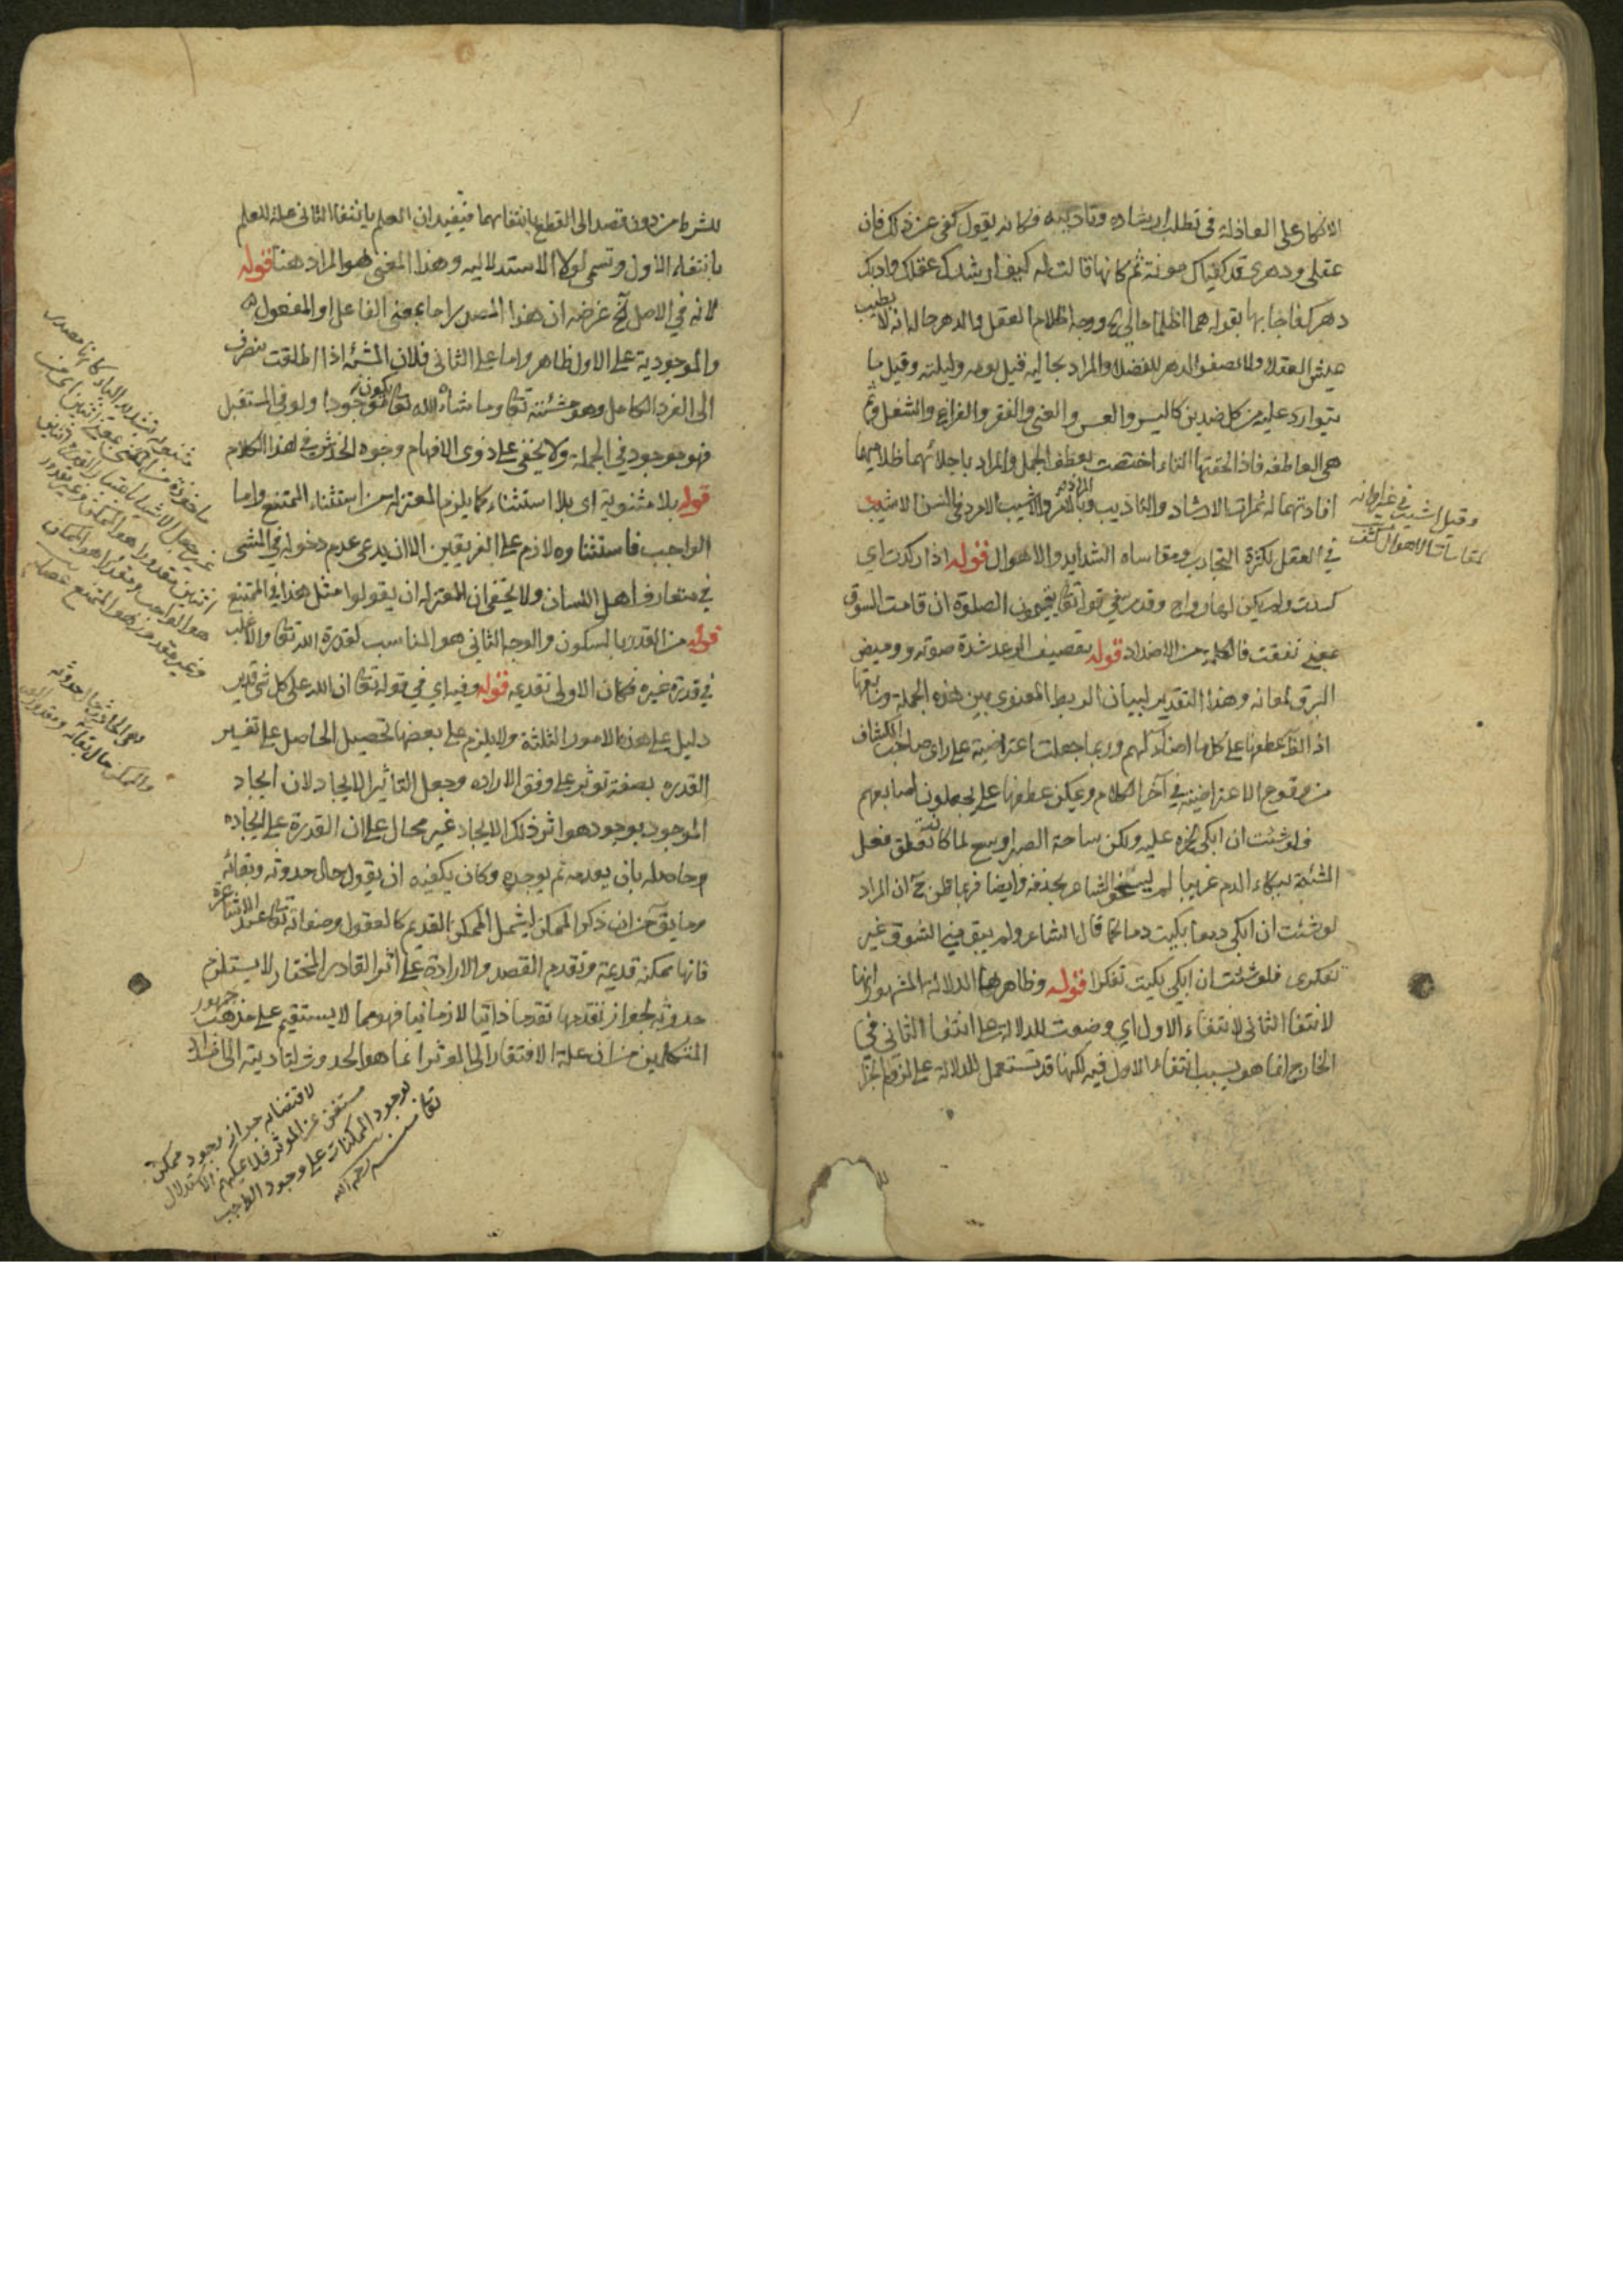 الانكار على العاذلة فى تطلب ارشاده وتاديبه فكانه يقول كفى عن ذلك فان
عقلى ودهرى قد كفياك مونة ثم كانها قالت له كيف ارشدك عقلك وادبك
دهرك فاجابها بقوله هما اظلما حالي ووجه اظلام العقل والدهر حاله انه لا يطيب
عيش العقلا ولا تصفو الدهر للفضلا والمراد بحاليه قيل يومه وليلته وقيل ما
يتوارد عليه من كل ضدين كاليسر والعسر والغنى والفقر والفراغ والشغل وثم
هى العاطفه فاذا لحقتها التاء اختصت بعطف الجمل والمراد باجلائهما ظلاميهما
افادتهما له ثمرات الارشاد والتاديب وبالامرد والاشيب الامرد فى السن الاشيب
في العقل لكثرة التجارب ومقاساه الشدايد والاهوال قوله اذا ركدت اي
وقيل اشيب في غير اوانه
لمقاساة الاهوال كشف
كسدت ولم يكن لها رواج وقد مر في قوله تعالى يقيمون الصلوة ان قامت السوق
بمعنى نفقت فالكلمه من الاضداد قوله بقصيف الرعد شدة صوته ووميض
البرق لمعانه وهذا التقدير لبيان الربط المعنوى بين هذه الجملة وما قبلها
اذ الظ عطفها على كلما اضاء لهم وربما جعلت اعتراضية على راى صاحب الكشاف
من وقوع الاعتراضية في آخر الكلام ويمكن عطفها على يجعلون اصابعهم
فلو شئت ان ابكى عليه ولكن ساحة الصبر اوسع لما كان تعلق فعل
المشية ببكاء الدم غريبا لم الشاعر بحذفه وايضا فربما ظن ح ان المراد
لو شئت ان ابكى دمعا بكيت دما كما قال الشاعر ولم يبق مني الشوق غير
تفكرى فلو شئت ان ابكى بكيت تفكرا قوله وظاهرها الدلالة المشهور انها
لانتفا الثانى لانتفاء الاول اي وضعت للدلالة على انتفا الثاني في
الخارج انما هو بسبب انتفاء الاول فيه لكنها قد تستعمل للدلالة على لزوم الجزا
للشرط من دون قصد الى القطع بانتفائهما فيفيد ان العلم بانتفا الثانى علة للعلم
بانتفاء الاول وتسمى لولا الاستدلاليه وهذا المعنى هو المراد هنا قوله
لانه في الاصل الخ غرضه ان هذا المصدر اما بمعنى الفاعل او المفعول
والموجودية على الاول ظاهر واما على الثانى فلان المشية اذا اطلقت تنصرف
الى الفرد الكامل وهو مشيئته تعالى وما شاء الله تعالى كونه موجودا ولو في المستقبل
فهو موجود في الجملة ولا يخفى على ذوى الافهام وجوه الخدش في هذا الكلام
قوله بلا مثنوية اى بلا استثناء كما يلزم المعتزله من استثناء الممتنع واما
الواجب فاستثناوه لازم على الفريقين الا ان يدعى عدم دخوله في الشى
في متعارف اهل اللسان ولا يخفى ان للمعتزله ان يقولوا مثل هذا في الممتنع
قوله من القدر بالسكون والوجه الثاني هو المناسب لقدرة الله تعالى والاغلب
في قدرة غيره فكان الاولى تقديمه قوله وفيه اي في قوله تعالى ان الله على كل شي قدير
دليل على هذه الامور الثلثة ولا يلزم على بعضها تحصيل الحاصل على تفسير
القدره بصفة توثر على وفق الاراده وجعل التاثير الايجاد لان ايجاد
الموجود بوجود هو اثر ذلك الايجاد غير محال على ان القدرة على ايجاده
وحاصله بان يعدمه ثم يوجده وكان يكفيه ان يقول حال حدوثه وبقائه
وما يق من ان ذكر الممكن ليشمل الممكن القديم كالعقول وصفاته تعالى عند الاشاعرة
فانها ممكنه قديمة وتقدم القصد والارادة على اثر القادر المختار لا يستلزم
حدوثه لجواز تقدمها تقدما ذاتيا لا زمانيا فهو مما لا يستقيم على مذهب جمهور
المتكلمين من ان علة الافتقار الى الموثر انما هو الحدوث لتاديته الى
لاقتضائه جواز وجود ممكن
مستغن عن الموثر فلا يمكنهم الاستدلال
بوجود الممكنات على وجود الواجب
تعالى منه رحمه الله